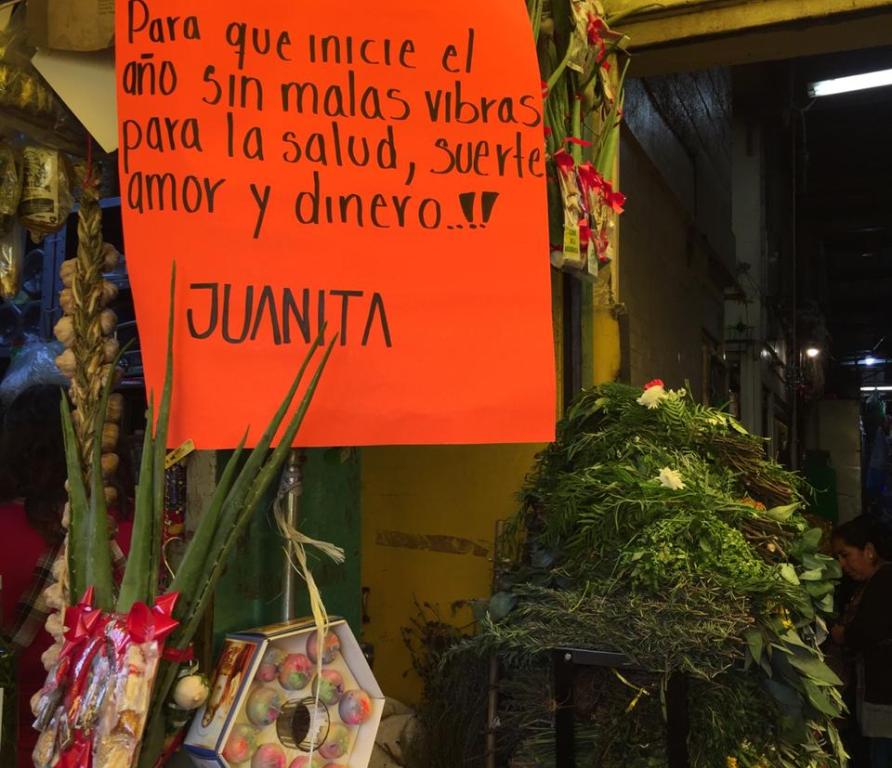 Para que inicie el
año sin malas vibras
para la salud, suerte
amor y dinero..!!
JUANITA